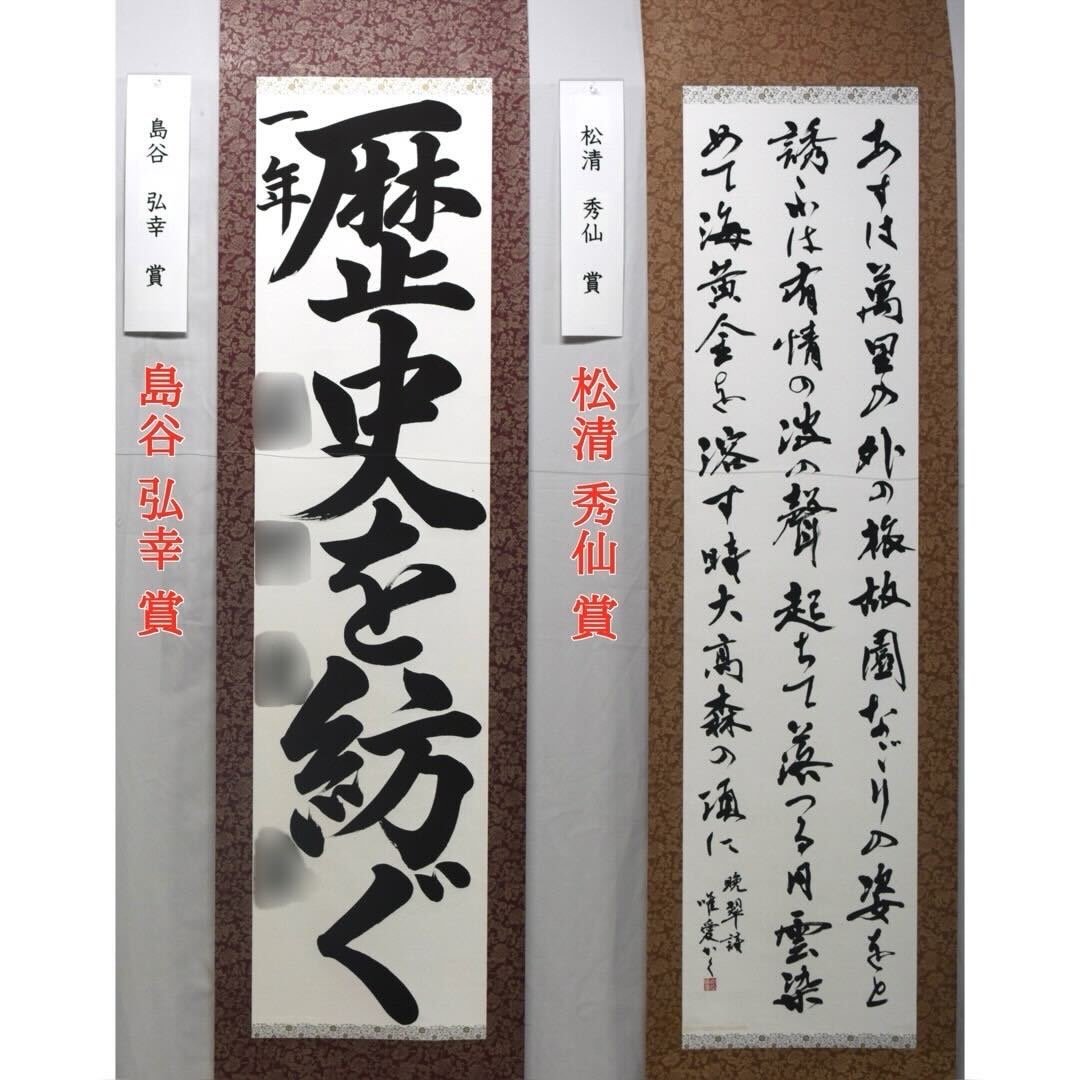 あすは萬里の外の旅故園なごりの姿をと
誘ふは有情の波の聲起ちて落つる日雲染
めて海黄金を溶す時大高森の頂に
晩翠詩
唯愛かく
松清 秀仙 賞
松清 秀仙 賞
歴史を紡ぐ
一年
島谷 弘幸 賞
島谷 弘幸 賞